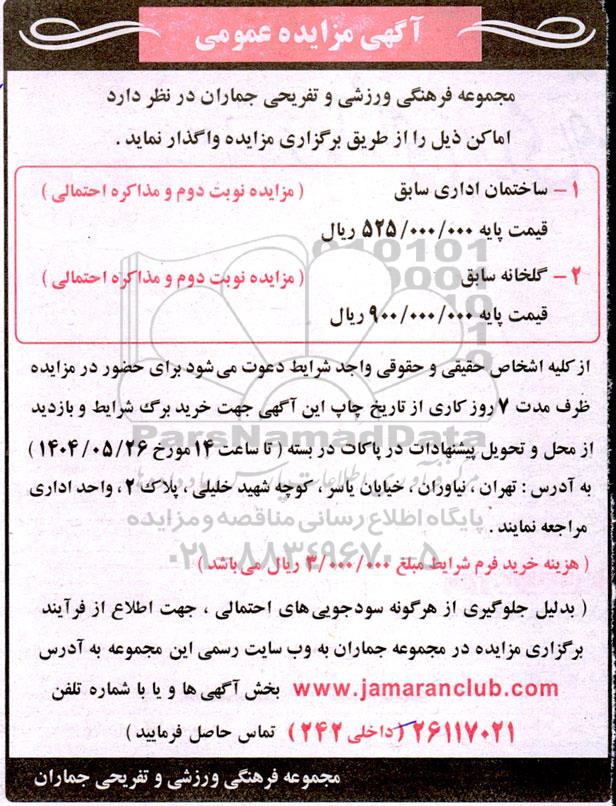 آگهی مزایده عمومی
مجموعه فرهنگی ورزشی و تفریحی جماران در نظر دارد
اماکن ذیل را از طریق برگزاری مزایده واگذار نماید .
۱ – ساختمان اداری سابق ( مزایده نوبت دوم و مذاکره احتمالی )
قیمت پایه ۵۲۵/۰۰۰/۰۰۰ ریال
۲ – گلخانه سابق ( مزایده نوبت دوم و مذاکره احتمالی )
قیمت پایه ۹۰۰/۰۰۰/۰۰۰ ریال
از کلیه اشخاص حقیقی و حقوقی واجد شرایط دعوت می شود برای حضور در مزایده
ظرف مدت ۷ روز کاری از تاریخ چاپ این آگهی جهت خرید برگ شرایط و بازدید
از محل و تحویل پیشنهادات در پاکات در بسته ( تا ساعت ۱۴ مورخ ۱۴۰۴/۰۵/۲۶ )
به آدرس : تهران ، نیاوران ، خیابان یاسر ، کوچه شهید خلیلی ، پلاک ۲ ، واحد اداری
مراجعه نمایند .
( هزینه خرید فرم شرایط مبلغ ۳/۰۰۰/۰۰۰ ریال می باشد )
( بدلیل جلوگیری از هرگونه سودجویی های احتمالی ، جهت اطلاع از فرآیند
برگزاری مزایده در مجموعه جماران به وب سایت رسمی این مجموعه به آدرس
www.jamaranclub.com بخش آگهی ها و یا با شماره تلفن
۲۶۱۱۷۰۲۱ (داخلی ۲۴۲ ) تماس حاصل فرمایید )
مجموعه فرهنگی ورزشی و تفریحی جماران
ParsNamadData
پایگاه اطلاع رسانی مناقصه و مزایده
۰۲۱-۸۸۳۴۹۶۷۰-۵